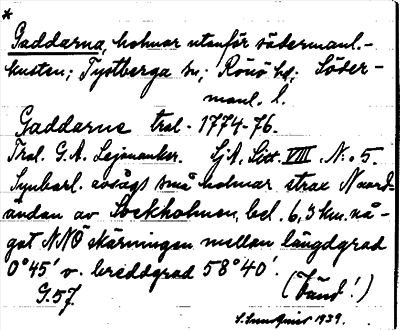 *
Gaddarna, holmar utanför södermanl.-
kusten; Tystberga sn; Rönö hd. Söder-
manl. l.
Gaddarne tral. 1774-76.
Tral. G. A. Lejonanker. Sj A, Litt. VIII N:o 5.
Synbarl. avsågs små holmar strax N nord-
ändan av Stockholmen, bel. 6,3 km. nå-
got NNÖ skärningen mellan längdgrad
0°45' v. breddgrad 58°40'.
G. 57. (Fånö!)
S. Sundquist 1939.